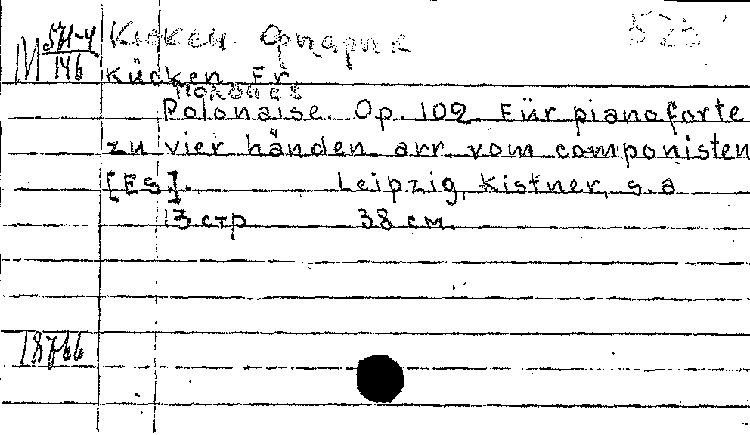 М 571-4/146
Кюкен Фридрих 523
Kücken, Fr.
Полонез
Polonaise. Op. 102 Für pianoforte
zu vier händen arr. vom componisten
[Es]. Leipzig, Kistner, s.a
13 стр 38 см.
18766